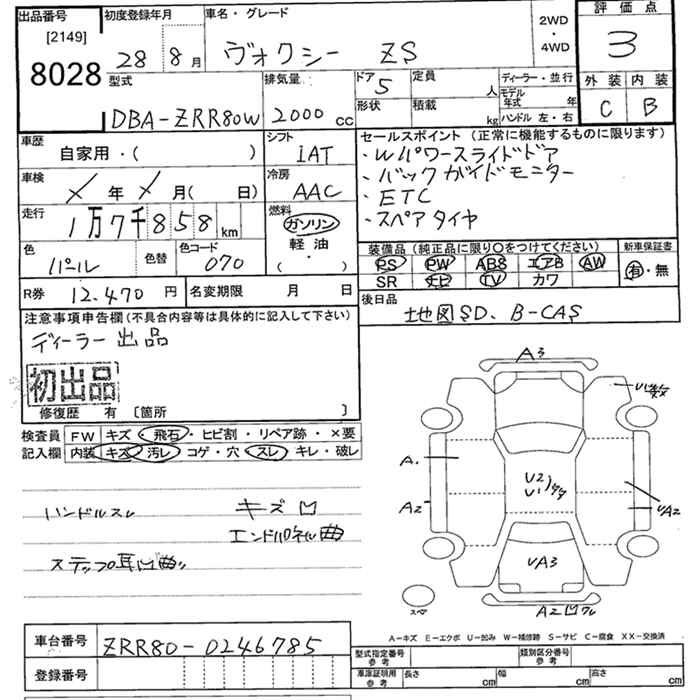 出品番号 初度登録年月 車名・グレード 2WD ・ 4WD 評価点
[2149]
8028 28年 8月 ヴォクシー ZS 3
型式 排気量 ドア 定員 ディーラー・並行 外装 内装
DBA-ZRR80W 2000 cc 5 人 モデル年式 年 C B
形状 積載 kg ハンドル 左・右
車歴 シフト セールスポイント (正常に機能するものに限ります)
自家用・( ) IAT ・Wパワースライドドア
車検 冷房 ・バックガイドモニター
年 月( 日) AAC ・ETC
走行 燃料 ・スペアタイヤ
1万7千858km ガソリン
色 色替 色コード 軽油 装備品 (純正品に限り○をつけてください) 新車保証書
パール 070 ( ・ ) PS PW ABS エアB AW 有・無
SR ナビ TV カワ
R券 12.470円 名変期限 月 日 後日品
地図SD、B-CAS
注意事項申告欄 (不具合内容等は具体的に記入して下さい)
ディーラー出品
初出品
修復歴 有 [箇所 ]
検査員 FW キズ・飛石・ヒビ割・リペア跡・×要
記入欄 内装 キズ 汚レ コゲ・穴・スレ・キレ・破レ
ハンドルスレ キズ凹
エンドパネル曲
ステップ耳凹曲ッ
A3
A.
A2
U2
U1
UA2
UA3
スペア
A2凹ワレ
A−キズ E−エクボ U−凹み W−補修跡 S−サビ C−腐食 XX−交換済
車台番号 ZRR80-0246785
登録番号
型式指定番号 参考 類別区分番号 参考
車庫証明用 参考 長さ cm 幅 cm 高さ cm